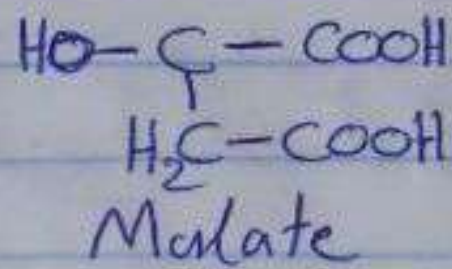 HO-C-COOH
H₂C-COOH
Malate